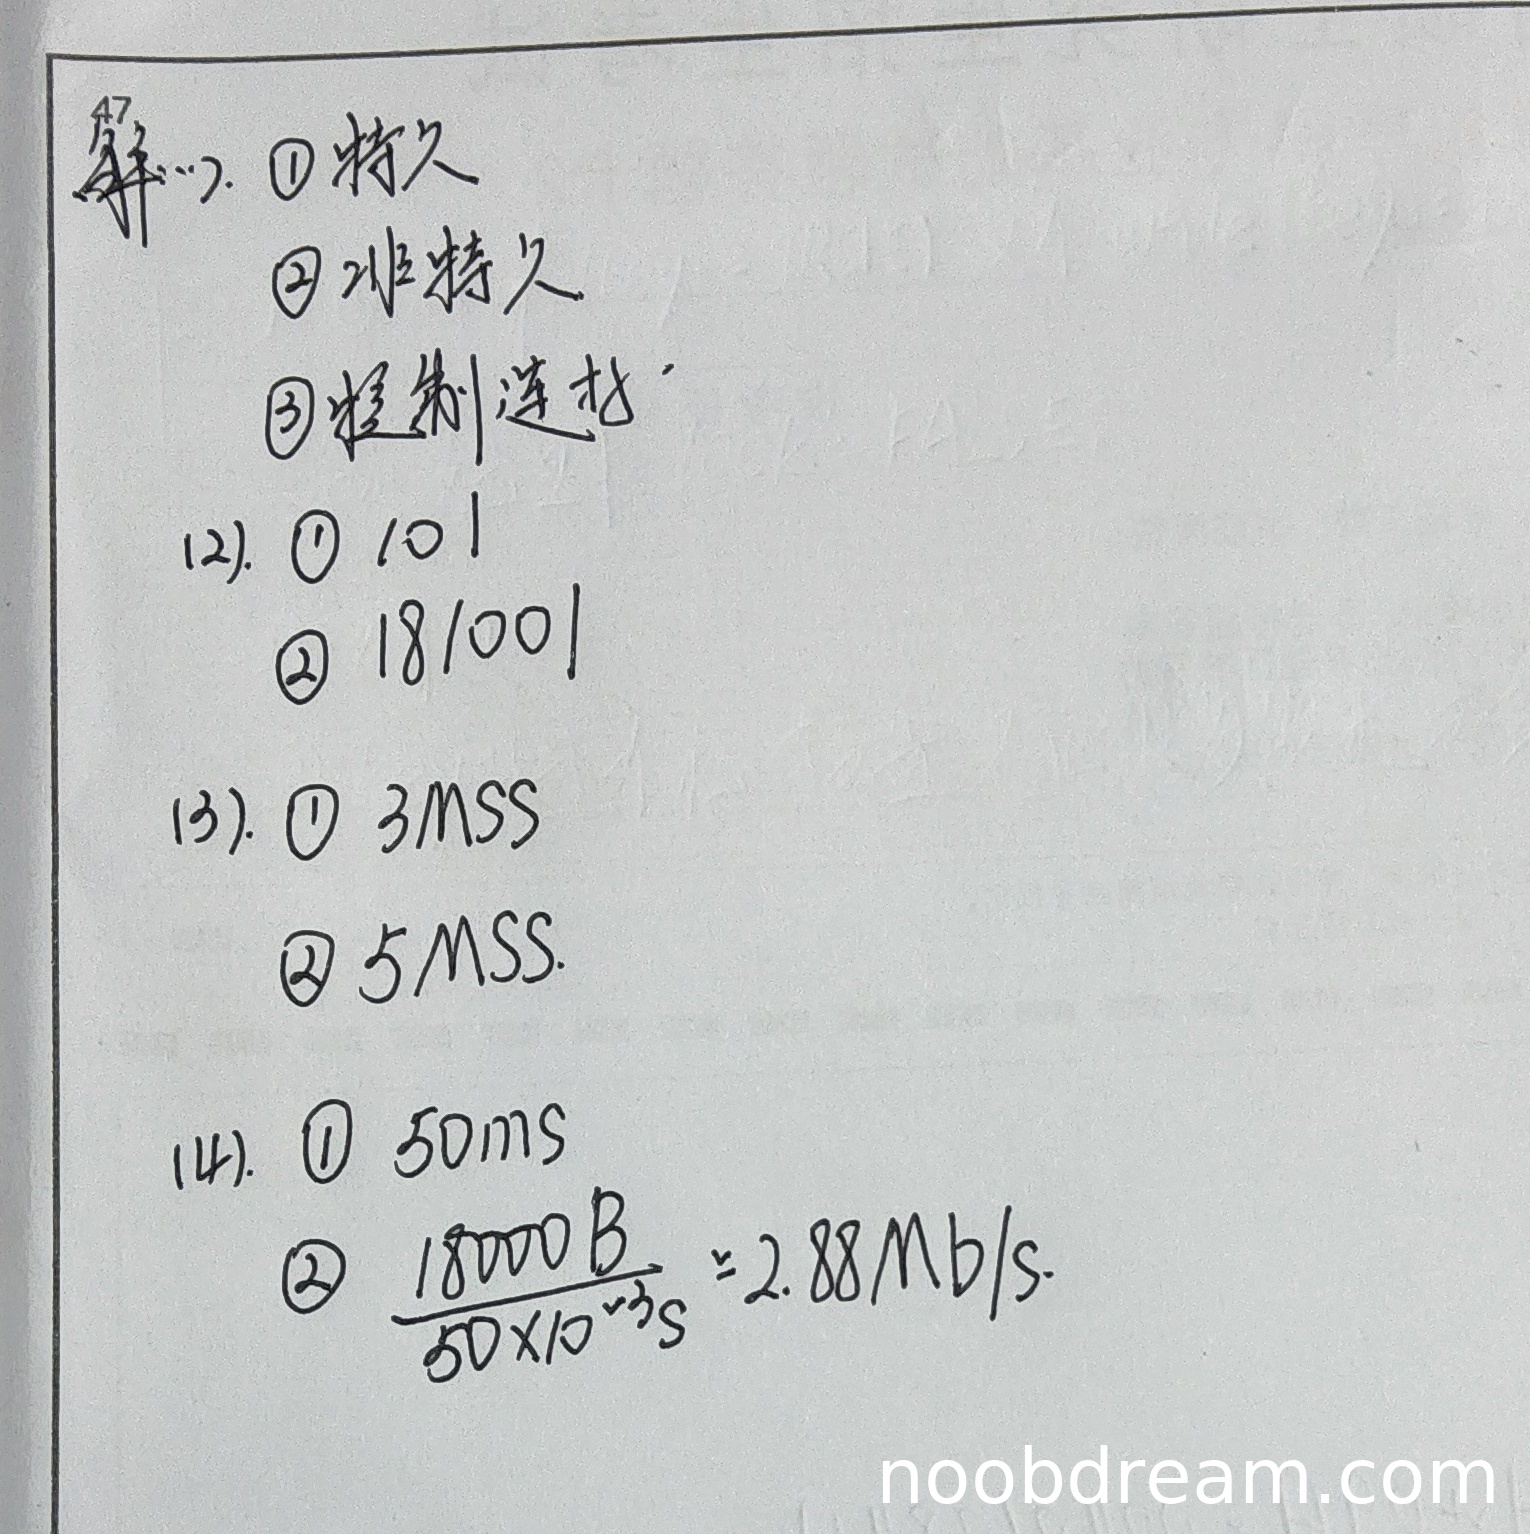 47
解(1). ①持久
②非持久
③控制连接.
(2). ① 101
② 181001
(3). ① 3MSS
② 5MSS.
(4). ① 50ms
② 18000B/50×10⁻³s = 2.88Mb/s.
noobdream.com